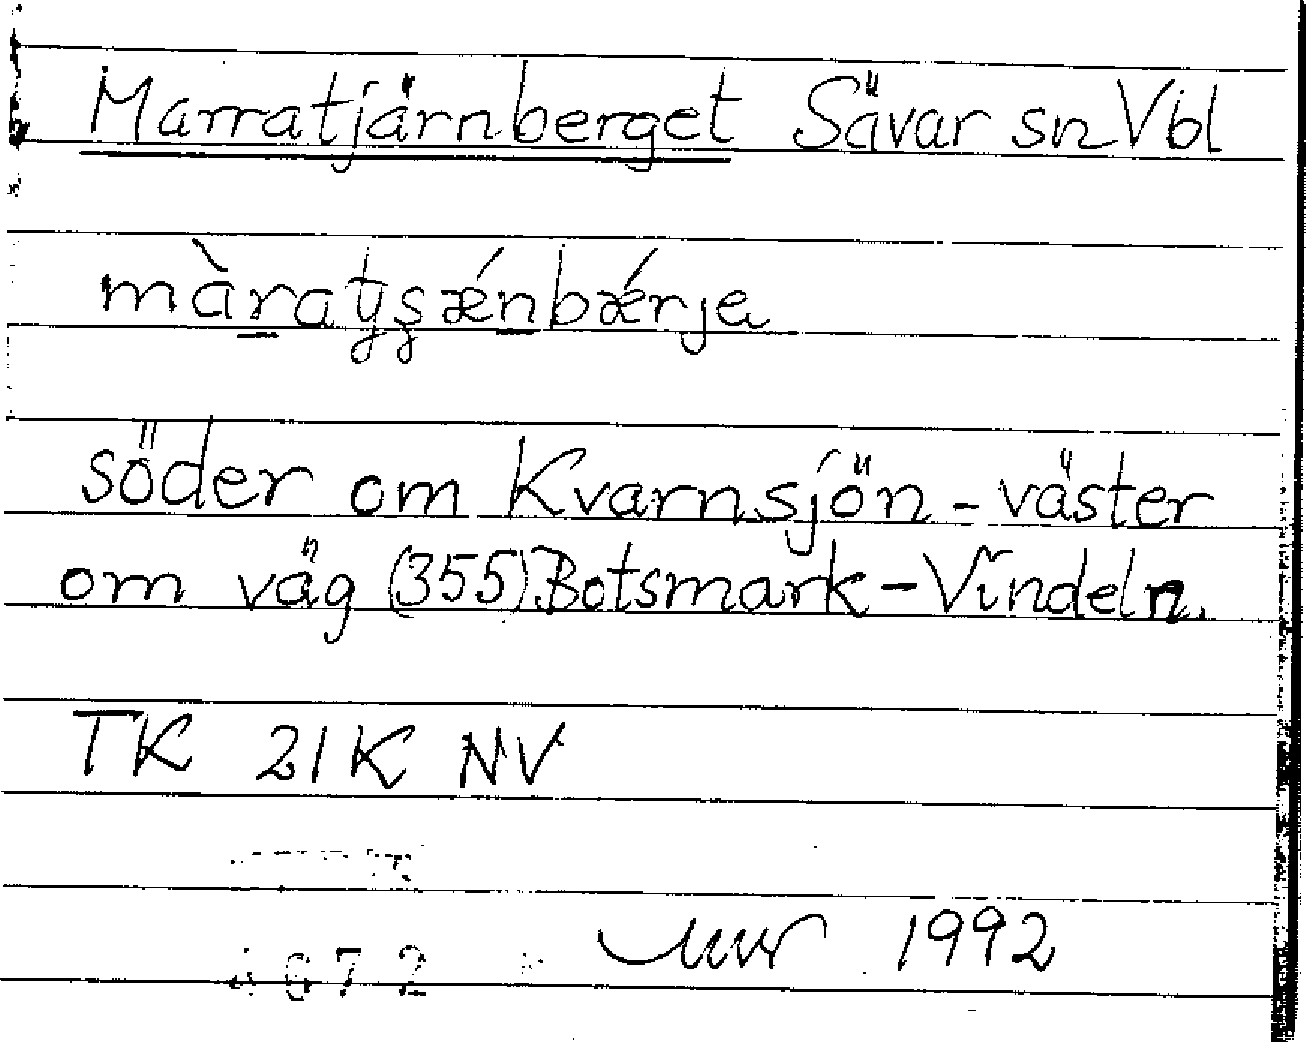 Marratjärnberget Sävar sn Vbl
màratʂǽnbǽrja
söder om Kvarnsjön - väster
om väg (355) Botsmark - Vindeln.
TK 21K NV
1992
4672